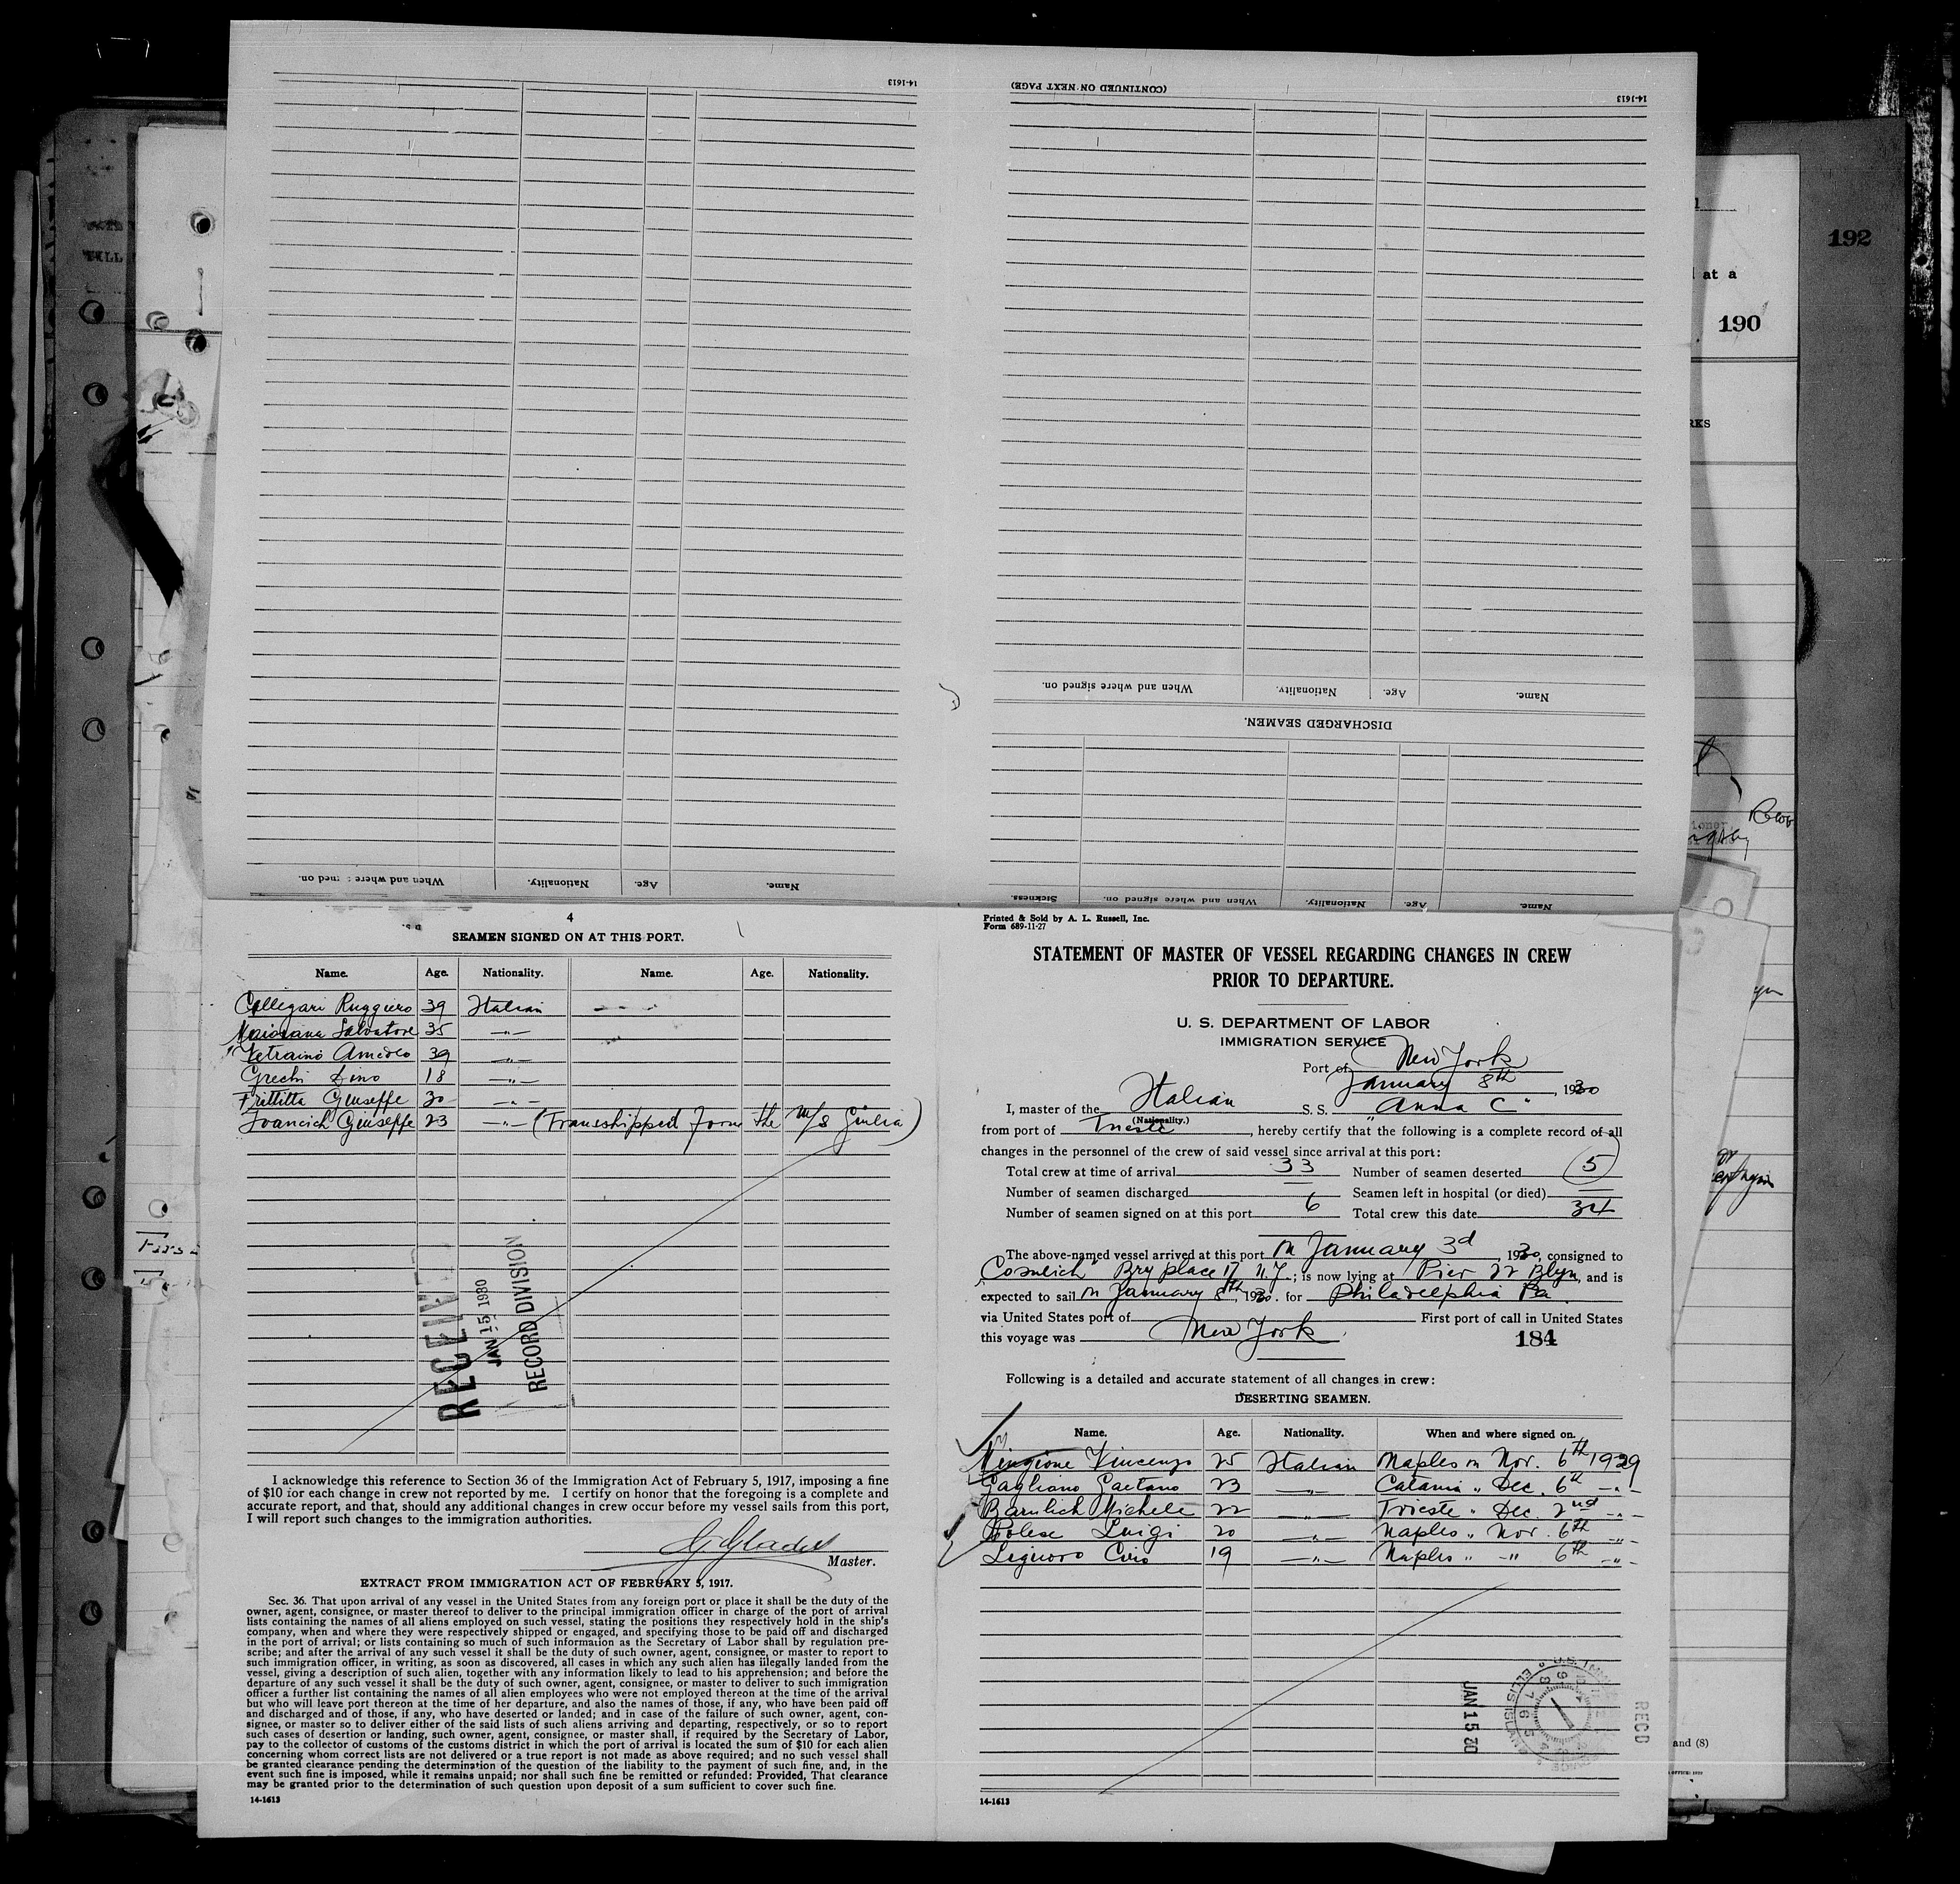 14-1613
(CONTINUED ON NEXT PAGE)
14-1613
192
at a
190
When and where signed on.
Nationality.
Age.
Name.
DISCHARGED SEAMEN.
When and where signed on.
Nationality.
Age.
Name.
Sickness.
When and where signed on.
Nationality.
Age.
Name.
4
SEAMEN SIGNED ON AT THIS PORT.
Name. Age. Nationality. Name. Age. Nationality.
Callegari Ruggiero 39 Italian
Maiorana Salvatore 35 —"—
Vetraino Amedeo 39 —"—
Grechi Dino 18 —"—
Frittitta Giuseppe 30 —"—
Ivancich Giuseppe 23 —"— (Transhipped form the M/S Giulia)
RECEIVED
JAN 15 1930
RECORD DIVISION
I acknowledge this reference to Section 36 of the Immigration Act of February 5, 1917, imposing a fine
of $10 for each change in crew not reported by me. I certify on honor that the foregoing is a complete and
accurate report, and that, should any additional changes in crew occur before my vessel sails from this port,
I will report such changes to the immigration authorities.
Master.
EXTRACT FROM IMMIGRATION ACT OF FEBRUARY 5, 1917.
Sec. 36. That upon arrival of any vessel in the United States from any foreign port or place it shall be the duty of the
owner, agent, consignee, or master thereof to deliver to the principal immigration officer in charge of the port of arrival
lists containing the names of all aliens employed on such vessel, stating the positions they respectively hold in the ship's
company, when and where they were respectively shipped or engaged, and specifying those to be paid off and discharged
in the port of arrival; or lists containing so much of such information as the Secretary of Labor shall by regulation pre-
scribe; and after the arrival of any such vessel it shall be the duty of such owner, agent, consignee, or master to report to
such immigration officer, in writing, as soon as discovered, all cases in which any such alien has illegally landed from the
vessel, giving a description of such alien, together with any information likely to lead to his apprehension; and before the
departure of any such vessel it shall be the duty of such owner, agent, consignee, or master to deliver to such immigration
officer a further list containing the names of all alien employees who were not employed thereon at the time of the arrival
but who will leave port thereon at the time of her departure, and also the names of those, if any, who have been paid off
and discharged and of those, if any, who have deserted or landed; and in case of the failure of such owner, agent, con-
signee, or master so to deliver either of the said lists of such aliens arriving and departing, respectively, or so to report
such cases of desertion or landing, such owner, agent, consignee, or master shall, if required by the Secretary of Labor,
pay to the collector of customs of the customs district in which the port of arrival is located the sum of $10 for each alien
concerning whom correct lists are not delivered or a true report is not made as above required; and no such vessel shall
be granted clearance pending the determination of the question of the liability to the payment of such fine, and, in the
event such fine is imposed, while it remains unpaid; nor shall such fine be remitted or refunded: Provided, That clearance
may be granted prior to the determination of such question upon deposit of a sum sufficient to cover such fine.
14-1613
Printed & Sold by A. L. Russell, Inc.
Form 689-11-27
STATEMENT OF MASTER OF VESSEL REGARDING CHANGES IN CREW
PRIOR TO DEPARTURE.
U. S. DEPARTMENT OF LABOR
IMMIGRATION SERVICE
Port of New York
January 8th, 1930
I, master of the Italian S. S. "Anna C"
(Nationality.)
from port of Trieste, hereby certify that the following is a complete record of all
changes in the personnel of the crew of said vessel since arrival at this port:
Total crew at time of arrival 33 Number of seamen deserted 5
Number of seamen discharged Seamen left in hospital (or died)
Number of seamen signed on at this port 6 Total crew this date 34
The above-named vessel arrived at this port on January 3d, 1930, consigned to
Cosulich Bry place 17 N.Y.; is now lying at Pier 22 Blyn, and is
expected to sail on January 8th 1930. for Philadelphia Pa
via United States port of First port of call in United States
this voyage was New York
184
Following is a detailed and accurate statement of all changes in crew:
DESERTING SEAMEN.
Name. Age. Nationality. When and where signed on.
Mingione Vincenzo 25 Italian Naples on Nov. 6th 1929
Gagliano Gaetano 23 —"— Catania " Dec. 6th —"—
Barulich Michele 22 —"— Trieste " Dec. 2nd —"—
Polese Luigi 20 —"— Naples " Nov. 6th —"—
Liguoro Ciro 19 —"— Naples " —"— 6th —"—
JAN 15 30
REC'D
14-1613
and (8)